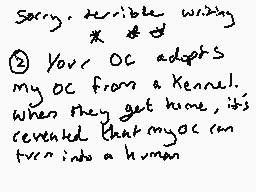 sorry. terrible writing
* * *
② Your OC adopts
my OC from a Kennel.
when they get home, it's
revealed that my OC can
turn into a human